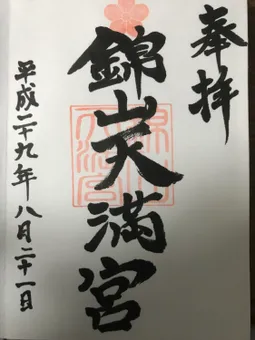 奉拝
錦山天満宮
平成二十九年八月二十一日